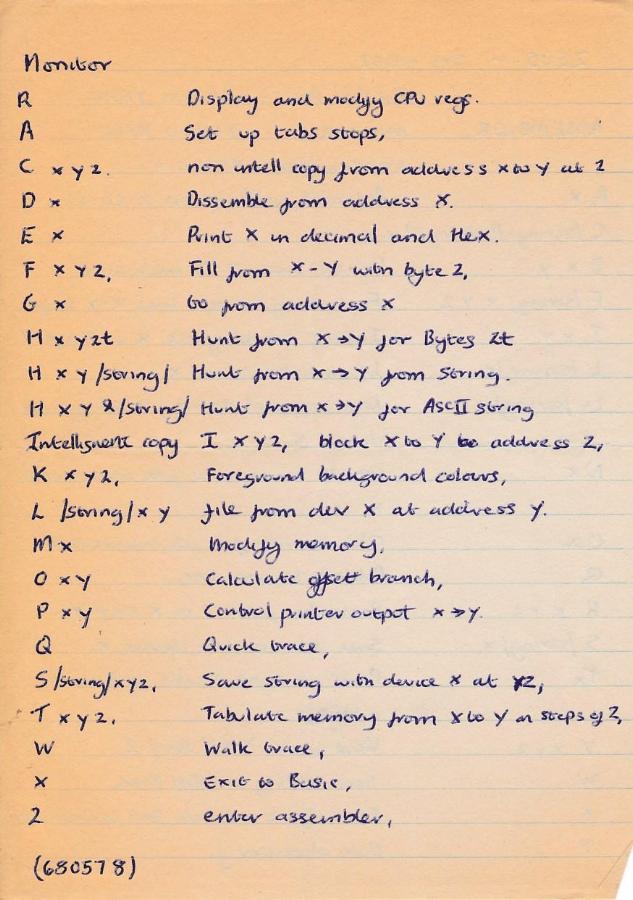 Monitor
R Display and modify CPU regs.
A Set up tabs stops,
C x y z. non intell copy from address x to y at z
D x Dissemble from address x.
E x Print X in decimal and Hex.
F x y z, Fill from x-y with byte z,
G x Go from address x
H x y z t Hunt from x→y for Bytes zt
H x y /string/ Hunt from x→y from string.
H x y & /string/ Hunt from x→y for AscII string
Intelligent copy I x y z, block x to y to address z,
K x y z, Foreground background colours,
L /string/ x y file from dev x at address y.
M x Modify memory,
O x y Calculate offset branch,
P x y Control printer output x→y.
Q Quick trace,
S /string/ x y z, Save string with device x at yz,
T x y z, Tabulate memory from x to y in steps of z,
W Walk trace,
X Exit to Basic,
Z enter assembler,
(680578)